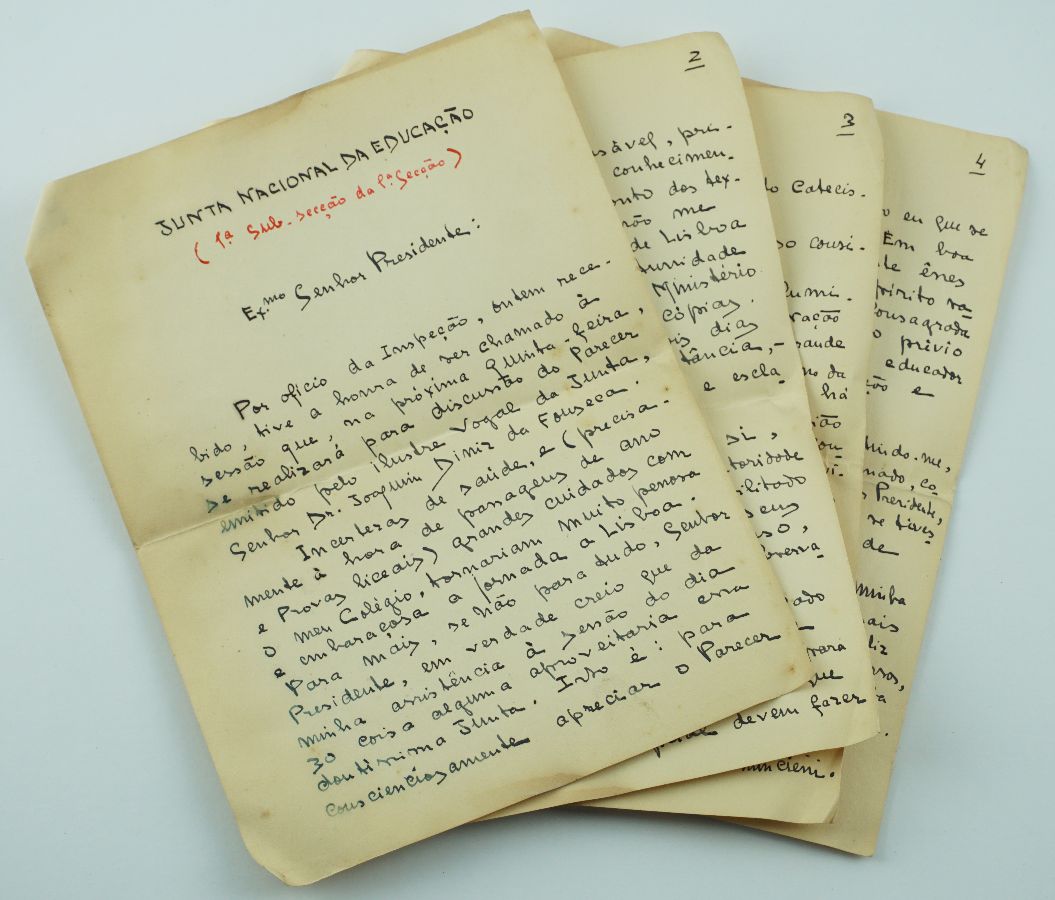 JUNTA NACIONAL DA EDUCAÇÃO
(1ª Sub-secção da 1ª Secção)
Ex.mo Senhor Presidente:
Por ofício da Inspeção, ontem rece-
bido, tive a honra de ser chamado à
sessão que, na próxima Quinta-feira,
se realizará para discussão do Parecer
emitido pelo ilustre Vogal da Junta,
Senhor Dr. Joaquim Diniz da Fonseca.
Incertezas de saúde, e (precisa-
mente à hora de passagens de ano
e Provas liceais) grandes cuidados com
o meu Colégio, tornariam muito penosa
e embaraçosa a jornada a Lisboa.
Para mais, se não para tudo, Senhor
Presidente, em verdade creio que da
minha assistência à sessão do dia
30 coisa alguma aproveitaria essa
doutíssima Junta. Isto é: para
conscienciosamente apreciar o Parecer
2
sável, pré-
conhecimen-
onto dos tex-
não me
de Lisboa
unidade
Ministério
cópias.
is dias
tância,-
e escla
si,
toridade
bilitado
seus
so,
para
que
devem fazer
3
do Catecis-
so cousi-
lumi-
ração
saude
no da
há
ão
4
o eu que se
Em boa
te êrres
pírito na
consagrada
o prévio
educador
ção e
uindo-me,
nado, co-
Presidente,
se tives-
de
minha
mais
liz